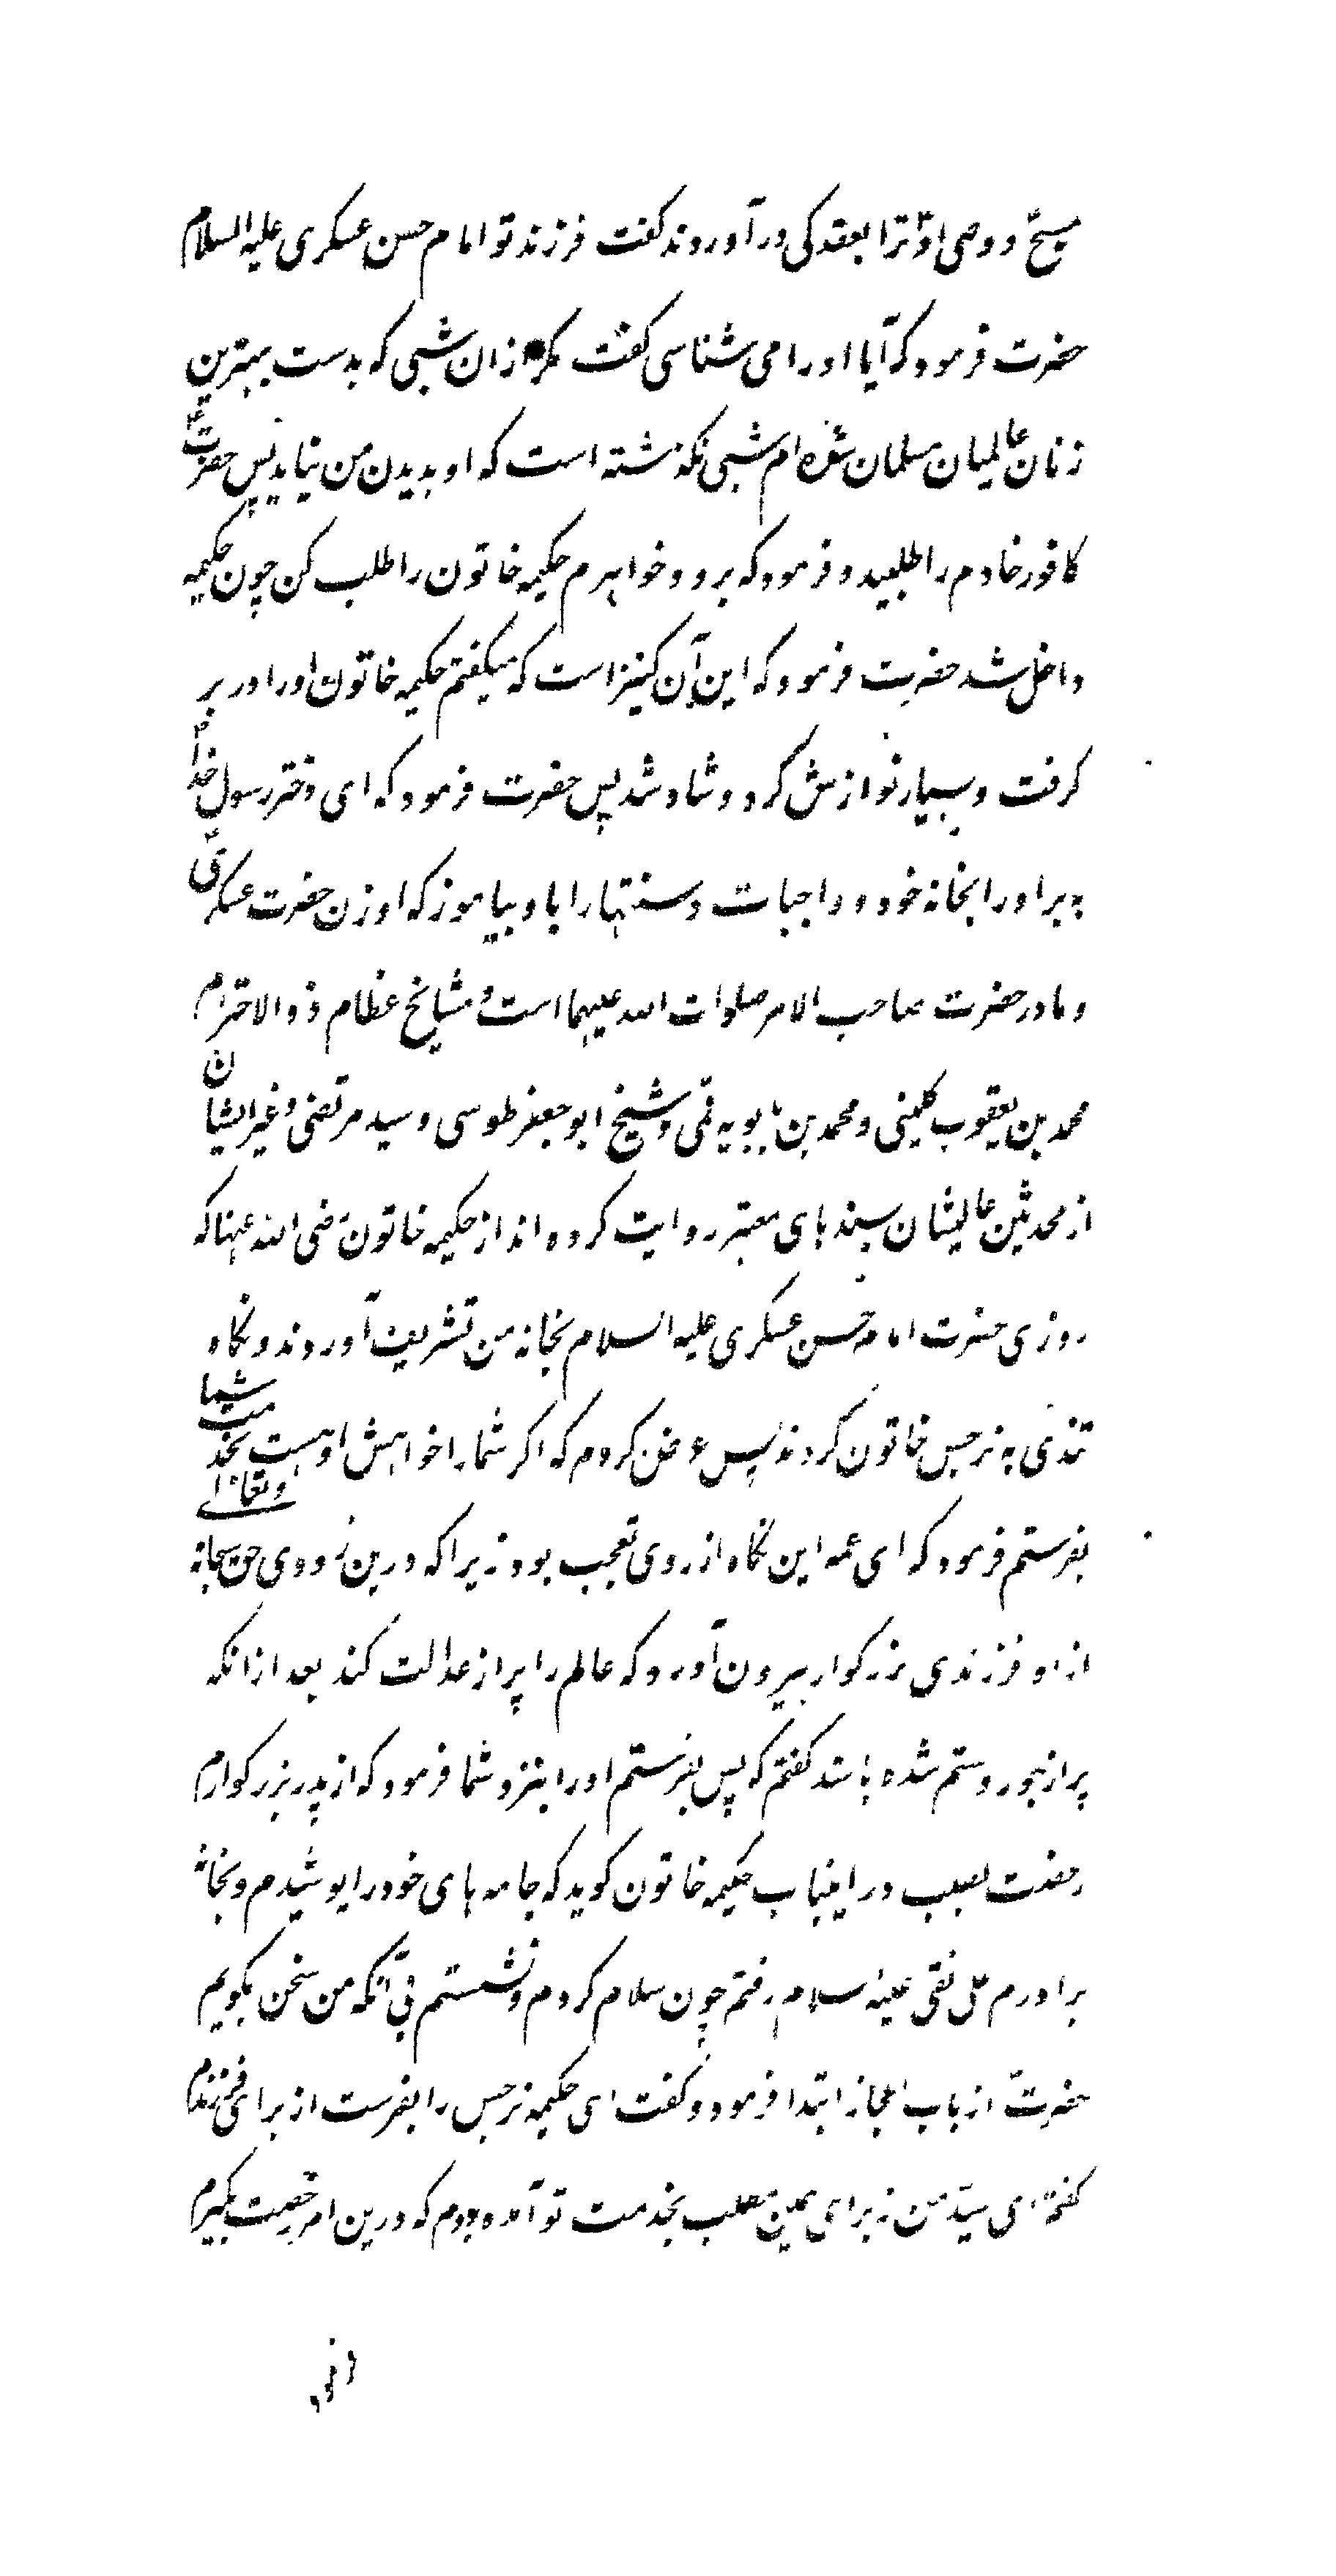 مسیح و وصی او ترا بعقد کی درآوردند گفت فرزند تو امام حسن عسکری علیه السلام
حضرت فرمود که آیا او را می شناسی گفت مگر از ان شبی که بدست بهترین
زنان عالمیان مسلمان شده ام شبی نگذشته است که او بدیدن من نیاید پس حضرت
کافور خادم را طلبید و فرمود که برو و خواهرم حکیمه خاتون را طلب کن چون حکیمه
داخل شد حضرت فرمود که این آن کنیز است که میگفتم حکیمه خاتون او را در بر
گرفت و بسیار نوازش کرد و شاد شد پس حضرت فرمود که ای دختر رسول خدا
به بر او را بخانه خود و واجبات و سنتها را باو بیاموز که او زن حضرت عسکری
و مادر حضرت صاحب الامر صلوات الله علیهما است و مشایخ عظام ذو الاحترام
محمد بن یعقوب کلینی و محمد بن بابویه قمی و شیخ ابو جعفر طوسی و سید مرتضی و غیر ایشان
از محدثین عالیشان بسند های معتبر روایت کرده اند از حکیمه خاتون رضی الله عنها که
روزی حضرت امام حسن عسکری علیه السلام بخانه من تشریف آوردند و نگاه
تندی به نرجس خاتون کردند پس عرض کردم که اگر شما را خواهش او هست بخدمت شما
بفرستم فرمود که ای عمه این نگاه از روی تعجب بود زیرا که درین زودی حق سبحانه و تعالی
از او فرزندی بزرگوار بیرون آورد که عالم را پر از عدالت کند بعد از انکه
پر از جور و ستم شده باشد گفتم که پس بفرستم او را بنزد شما فرمود که از پدر بزرگوارم
رخصت بطلب در اینباب حکیمه خاتون گوید که جامه های خود را پوشیدم و بخانه
برادرم علی نقی علیه السلام رفتم چون سلام کردم و نشستم بی آنکه من سخن بگویم
حضرت از باب اعجاز ابتدا فرمود و گفت ای حکیمه نرجس را بفرست از برای فرزندم
گفتم ای سید من از برای همین مطلب بخدمت تو آمده بودم که درین امر رخصت بگیرم